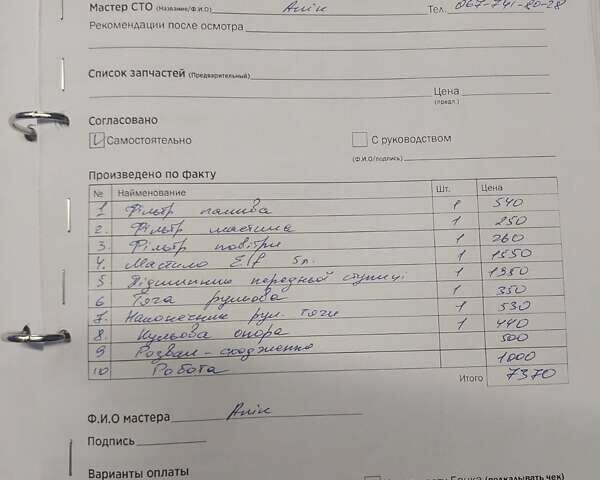 Мастер СТО (Название/Ф.И.О) Алік Тел. 067-741-80-28
Рекомендации после осмотра
Список запчастей (Предварительный)
Цена
(предл.)
Согласовано
Самостоятельно С руководством
(Ф.И.О/подпись)
Произведено по факту
№ Наименование Шт. Цена
1 Фільтр палива 1 540
2. Фільтр мастила 1 250
3. Фільтр повітря 1 260
4. Мастило Elf 5л. 1 1550
5 Підшипник передньої ступиці 1 1950
6 Тяга рульова 1 350
7. Наконечник рул. тяги 1 530
8 Кульова опора 1 440
9 Розвал-сходження 500
10 Робота 1000
Итого 7370
Ф.И.О мастера Алік
Подпись
Варианты оплаты
(подкалывать чек)